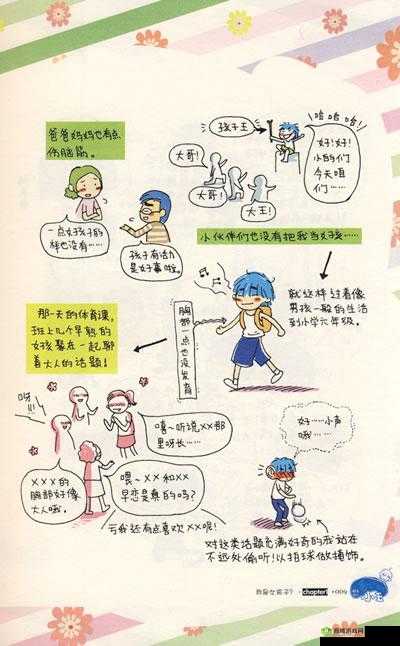 爸爸妈妈也有点
伤脑筋。
一点女孩子的
样也没有……
孩子有活力
是好事啦。
孩子王
大哥!
大哥!
大王!
哈哈哈!
好!好!
小的们
今天咱
们……
小伙伴们也没有把我当女孩……
就这样过着像
男孩一般的生活
到小学六年级。
胸部一点也没发育
那一天的体育课,
班上几个早熟的
女孩聚在一起聊
着大人的话题!
呀!!!
嘻~听说XX那
里呀长……
XXX的
胸部好像
大人哦。
喂~XX和XX
早恋是真的吗?
亏我还有点喜欢XX呢!
好……小声
哦……
对这类话题充满好奇的我站在
不远处偷听!以拍球做掩饰。
我是女孩子? · chapter1 · +009